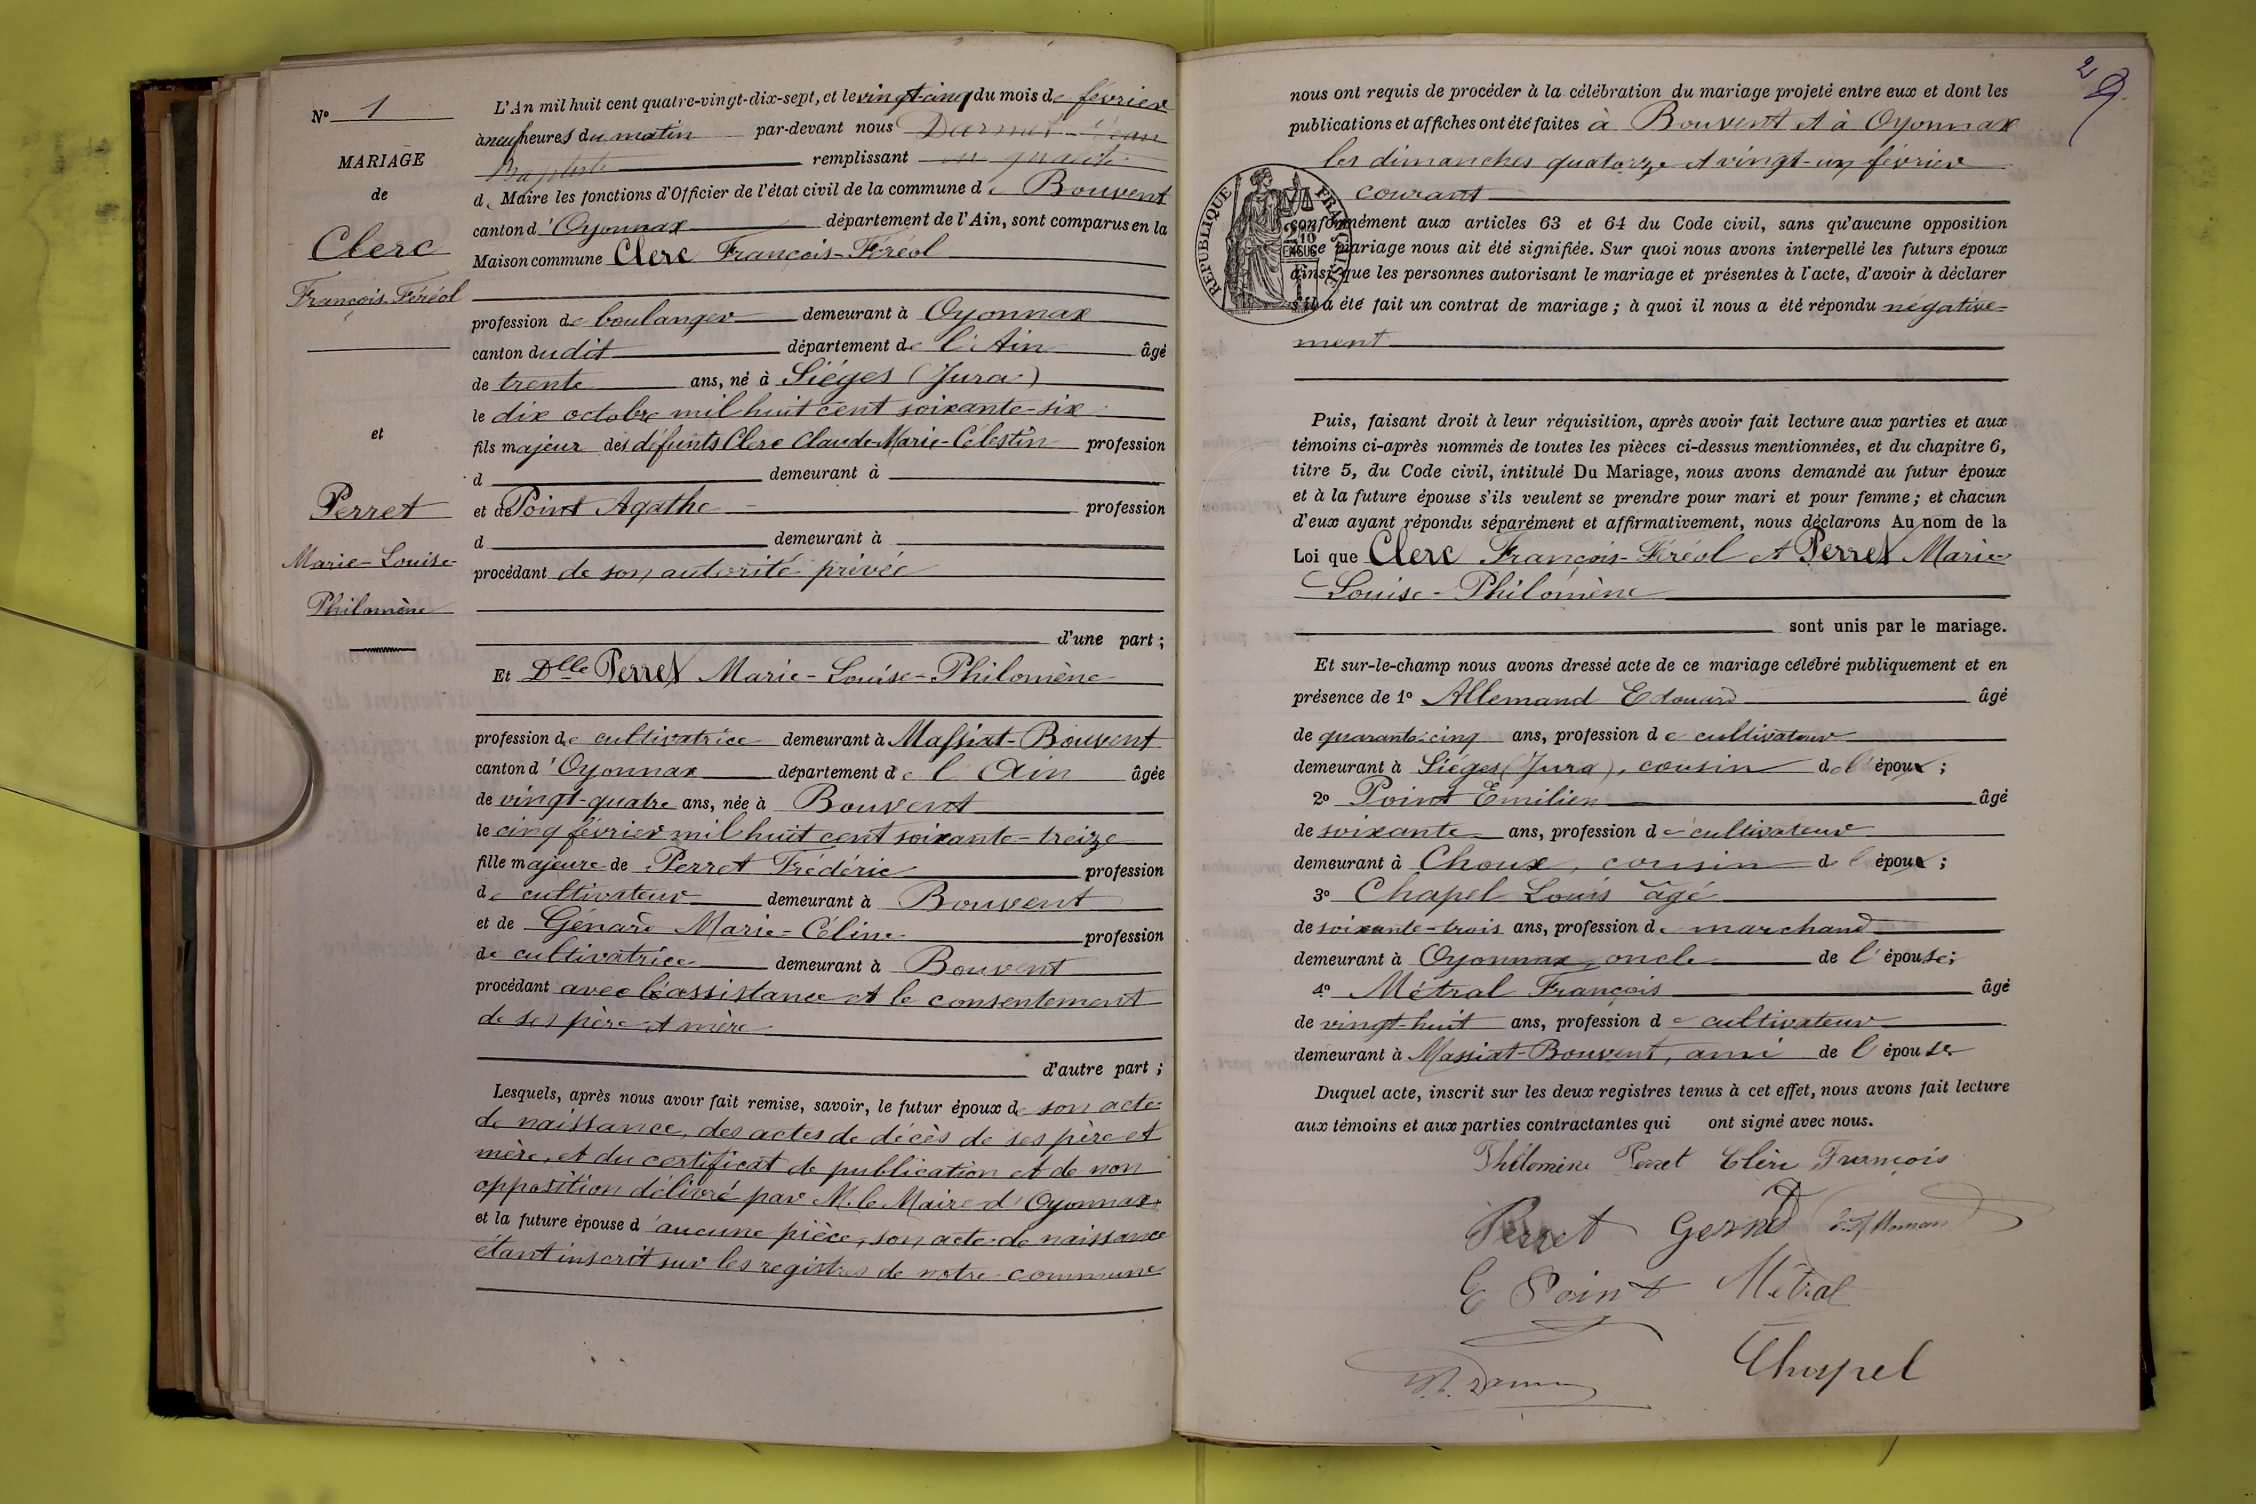 N° 1
MARIAGE
de
Clerc
François-Féréol
et
Perret
Marie-Louise-
Philomène
L'An mil huit cent quatre-vingt-dix-sept, et le vingt-cinq du mois de février
à neuf heures du matin par-devant nous Jean
Baptiste remplissant en qualité
de Maire les fonctions d'Officier de l'état civil de la commune de Bouvent
canton d'Oyonnax département de l'Ain, sont comparus en la
Maison commune Clerc François-Féréol
profession de boulanger demeurant à Oyonnax
canton dudit département de l'Ain âgé
de trente ans, né à Siéges (Jura)
le dix octobre mil huit cent soixante-six
fils majeur des défunts Clerc Claude-Marie-Célestin profession
d demeurant à
et de Point Agathe profession
d demeurant à
procédant de son autorité privée
d'une part ;
Et Dlle Perret Marie-Louise-Philomène
profession de cultivatrice demeurant à Massiat-Bouvent
canton d'Oyonnax département de l'Ain âgée
de vingt-quatre ans, née à Bouvent
le cinq février mil huit cent soixante-treize
fille majeure de Perret Frédéric profession
de cultivateur demeurant à Bouvent
et de Génard Marie-Céline profession
de cultivatrice demeurant à Bouvent
procédant avec l'assistance et le consentement
de ses père et mère
d'autre part ;
Lesquels, après nous avoir fait remise, savoir, le futur époux de son acte
de naissance, des actes de décès de ses père et
mère, et du certificat de publication et de non
opposition délivré par M. le Maire d'Oyonnax
et la future épouse d'aucune pièce, son acte de naissance
étant inscrit sur les registres de notre commune
2
nous ont requis de procéder à la célébration du mariage projeté entre eux et dont les
publications et affiches ont été faites à Bouvent et à Oyonnax
les dimanches quatorze et vingt-un février
courant
conformément aux articles 63 et 64 du Code civil, sans qu'aucune opposition
ce mariage nous ait été signifiée. Sur quoi nous avons interpellé les futurs époux
ainsi que les personnes autorisant le mariage et présentes à l'acte, d'avoir à déclarer
s'il a été fait un contrat de mariage ; à quoi il nous a été répondu négative-
ment
RÉPUBLIQUE FRANÇAISE
Puis, faisant droit à leur réquisition, après avoir fait lecture aux parties et aux
témoins ci-après nommés de toutes les pièces ci-dessus mentionnées, et du chapitre 6,
titre 5, du Code civil, intitulé Du Mariage, nous avons demandé au futur époux
et à la future épouse s'ils veulent se prendre pour mari et pour femme ; et chacun
d'eux ayant répondu séparément et affirmativement, nous déclarons Au nom de la
Loi que Clerc François-Féréol et Perret Marie-
Louise-Philomène
sont unis par le mariage.
Et sur-le-champ nous avons dressé acte de ce mariage célébré publiquement et en
présence de 1° Allemand Edouard âgé
de quarante-cinq ans, profession de cultivateur
demeurant à Siéges (Jura), cousin de l'époux ;
2° Point Emilien âgé
de soixante ans, profession de cultivateur
demeurant à Choux, cousin de l'époux ;
3° Chapel Louis âgé
de soixante-trois ans, profession de marchand
demeurant à Oyonnax, oncle de l'épouse ;
4° Métral François âgé
de vingt-huit ans, profession de cultivateur
demeurant à Massiat-Bouvent, ami de l'épouse
Duquel acte, inscrit sur les deux registres tenus à cet effet, nous avons fait lecture
aux témoins et aux parties contractantes qui ont signé avec nous.
Philomène Perret Clerc François
Perret
E Point Métral
Chapel